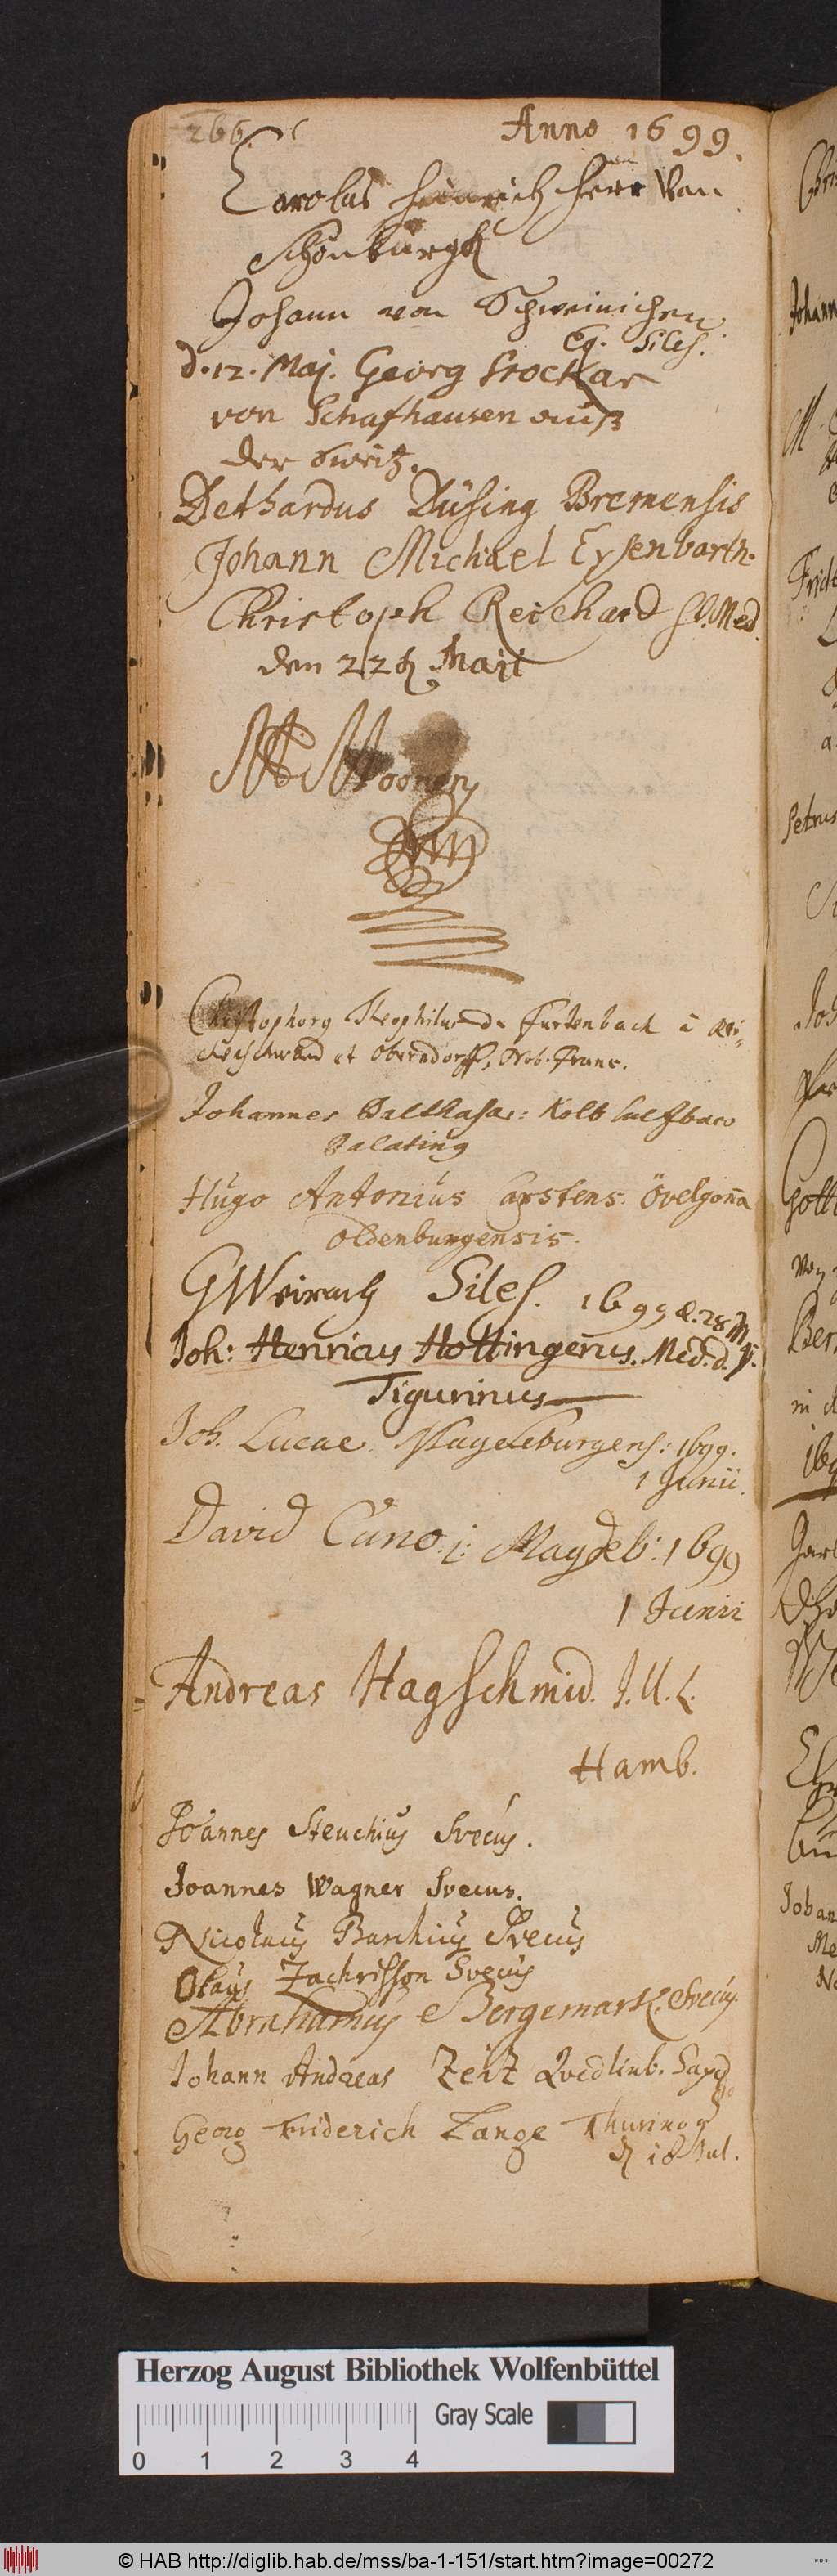 266.
Anno 1699.
Carolus Heinrich Herr Von
Schönburgk
Johann von Schweinichen
Eq. Siles.
d. 12. Maj. Georg Stockar
von Schafhausen auß
der Sweitz.
Dethardus Düsing Bremensis
Johann Michael Eysenbarth.
Christoph Reichard St. Med.
den 22 Maji
Christophorg Theophilus de Furtenbach à Rei=
chenschwand et Oberndorff, Nob. Franc.
Johannes Balthasar: Kolb
Palating
Hugo Antonius Carstens. Övelgoña
Oldenburgensis.
GWeirach Siles. 1699 d. 28 Maji.
Joh: Henricus Hottingerus. Med. d.
Tigurinus
Joh. Lucae Magdeburgens: 1699.
1 Junii.
David Cuno. j: Magdeb: 1699
1 Junii
Andreas Hagschmid. J. U. L.
Hamb.
Joannes Steuchius Svecus.
Joannes Wagner Svecus.
Nicolaus Barchius Svecus
Olaus Zachrisson Svecus
Abrahamus Bergemark. Svecus.
Johann Andreas Zeitz Qvedlinb. Saxo
Georg Friderich Lange Thuring
d 18 Jul.
Herzog August Bibliothek Wolfenbüttel
Gray Scale
0 1 2 3 4
© HAB http://diglib.hab.de/mss/ba-1-151/start.htm?image=00272